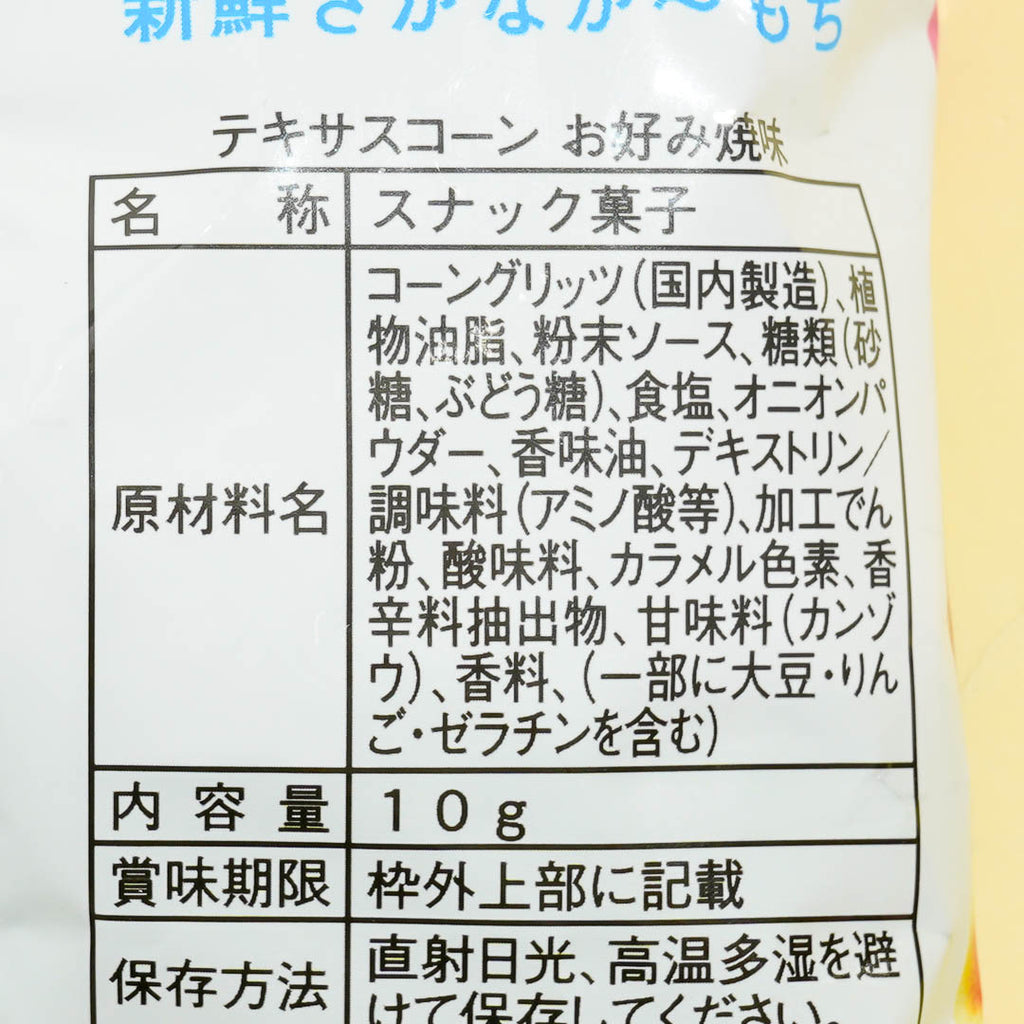 新鮮さがなが〜もち
テキサスコーン お好み焼味
名称 スナック菓子
原材料名
コーングリッツ(国内製造)、植
物油脂、粉末ソース、糖類(砂
糖、ぶどう糖)、食塩、オニオンパ
ウダー、香味油、デキストリン/
調味料(アミノ酸等)、加工でん
粉、酸味料、カラメル色素、香
辛料抽出物、甘味料(カンゾ
ウ)、香料、(一部に大豆・りん
ご・ゼラチンを含む)
内容量 10g
賞味期限 枠外上部に記載
保存方法 直射日光、高温多湿を避
けて保存してください。